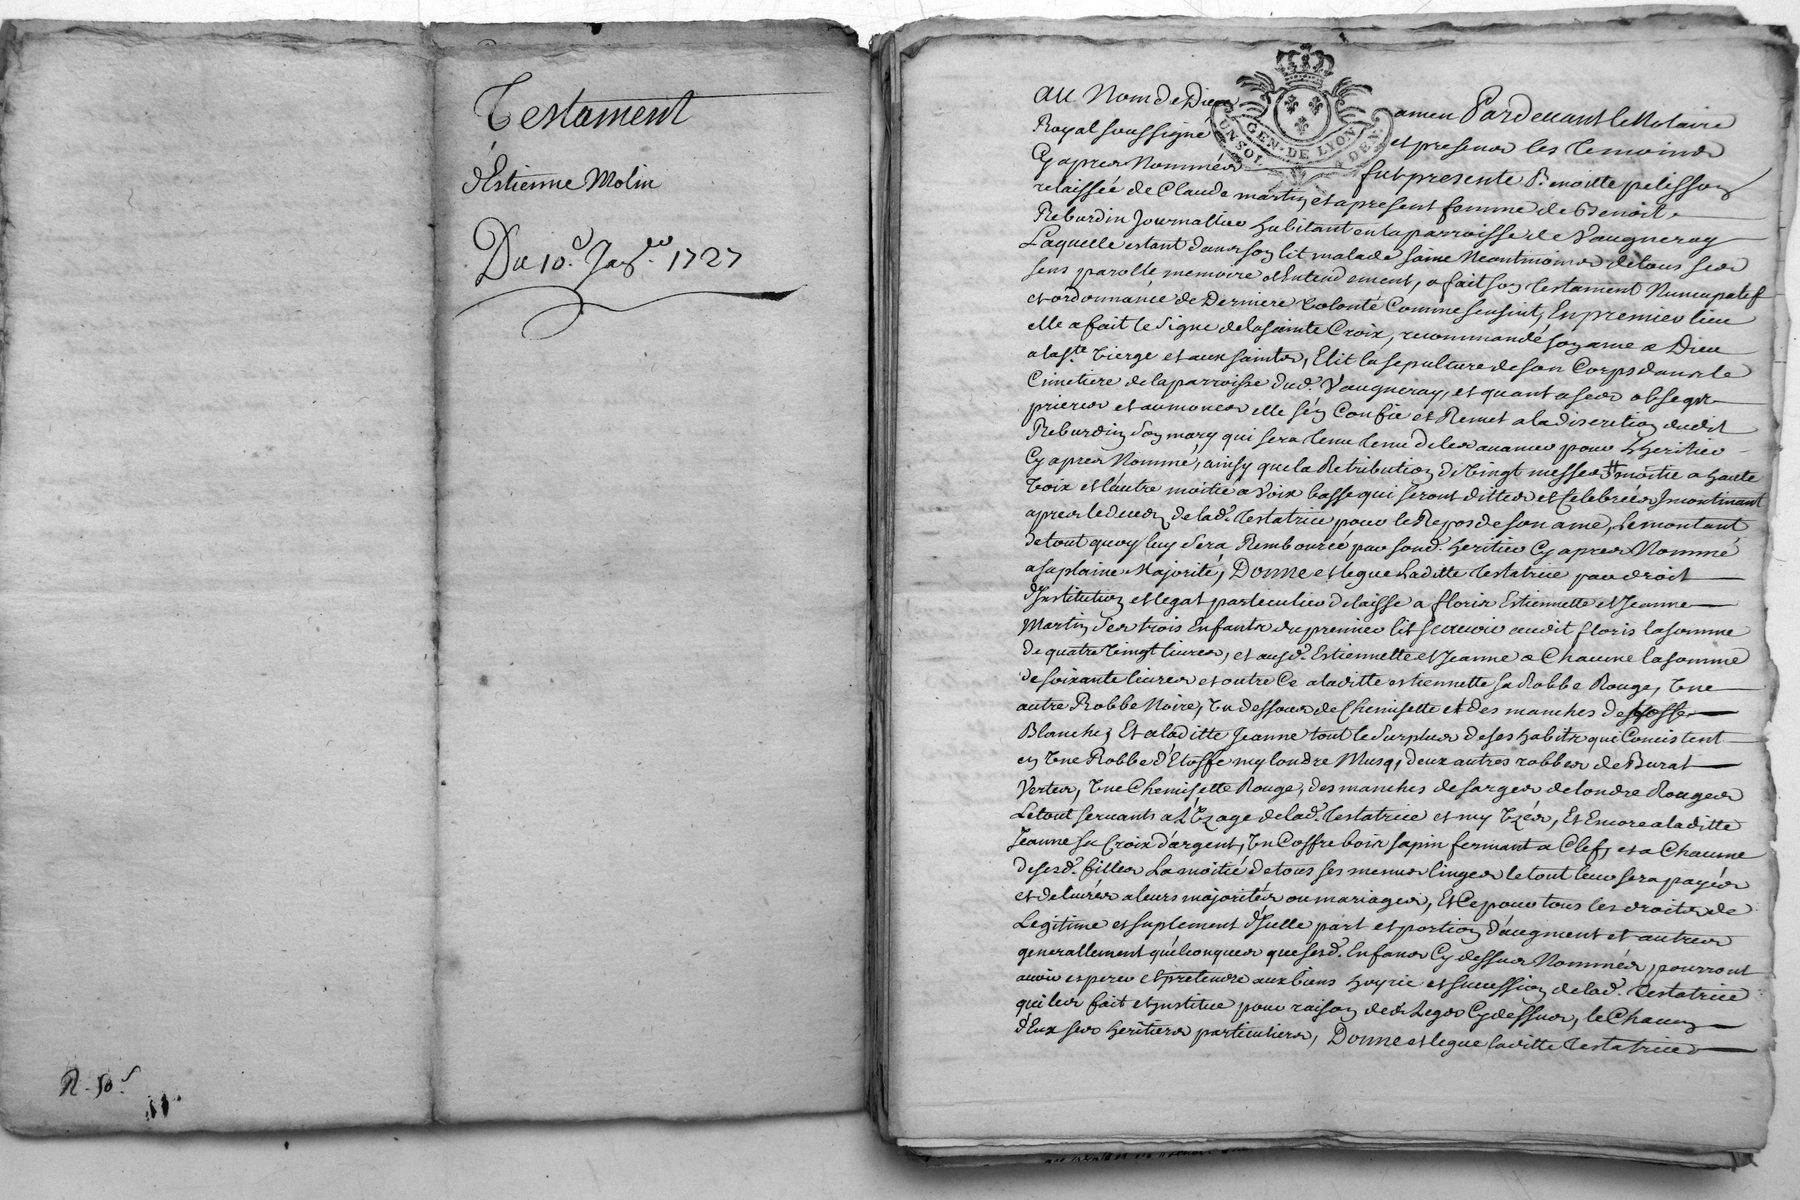 Testament
d'Estienne Molin
Du 10.e Janv.er 1727
R. 10.s
UN SOL GEN. DE LYON 4 DEN
au Nom de Dieu amen Pardevant le Notaire
Royal soussigné et presence les temoins
Cy apres Nommés fut presente Benoitte pelisson
relaissée de Claude martin et apresent femme de Benoit
Reburdin Journallier habitant en la parroisse de Vaugneray
Laquelle estant dans son lit malade saine Neantmoins de tous ses
sens parolle memoire et Entendement, a fait son testament Nuncupatif
et ordonnance de Derniere volonté Comme sensuit, En premier lieu
elle a fait le signe de la sainte Croix, recommandé son ame a Dieu
a la s.te vierge et aux saints, Elit la sepulture de son Corps dans le
Cimetiere de la parroisse dud. Vaugneray, et quant a ses obseqs
prieres et aumones elle s'en Confie et Remet a la discretion dudit
Reburdin son mary qui sera tenu tenu de les avancer pour L'heritier
Cy apres Nommé, ainsy que la Retribution de vingt messes moitié a haute
voix et l'autre moitié a Voix basse qui seront dittes et Celebrées Incontinant
apres le deces de lad. testatrice pour le Repos de son ame, Le montant
de tout quoy luy sera Remboursé par sond. heritier Cy apres Nommé
a sa plaine Majorité, Donne et legue Laditte testatrice par droit
d'Institution et legat particulier delaisse a floris Estiennette et Jeanne
Martin ses trois Enfants du premier lit scavoir audit floris la somme
de quatre vingt livres, et ausd. Estiennette et Jeanne a Chacune la somme
de soixante livres et outre Ce a laditte estiennette sa Robbe Rouge, Une
autre Robbe Noire, Un dessous de Chemisette et des manches
Blanche; Et a laditte Jeanne tout le surplus de ses habits qui Consistent
en Une Robbe d'Etoffe my londre Musq, deux autres robbes de Burat
Vertes, Une Chemisette Rouge, des manches de sarges de londre Rouges
Le tout servants a L'Uzage de lad. testatrice et my Uzés, Et Encore a laditte
Jeanne sa Croix d'argent, Un Coffre bois sapin fermant a Clef, et a Chacune
de sesd. filles La moitié de tous ses menus linges le tout leur sera payés
et delivrés a leurs majorités ou mariages, Et Ce pour tous les droits de
Legitime et suplement d'Icelle part et portion d'augment et autres
generallement quelconques que sesd. Enfans Cy dessus Nommés, pourront
avoir esperer et pretendre aux biens hoyrie et sucession de lad. testatrice
qui les fait et Institue pour raison desd. Legs Cy dessus, le Chacun
d'Eux ses heritiers particuliers, Donne et legue laditte testatrice